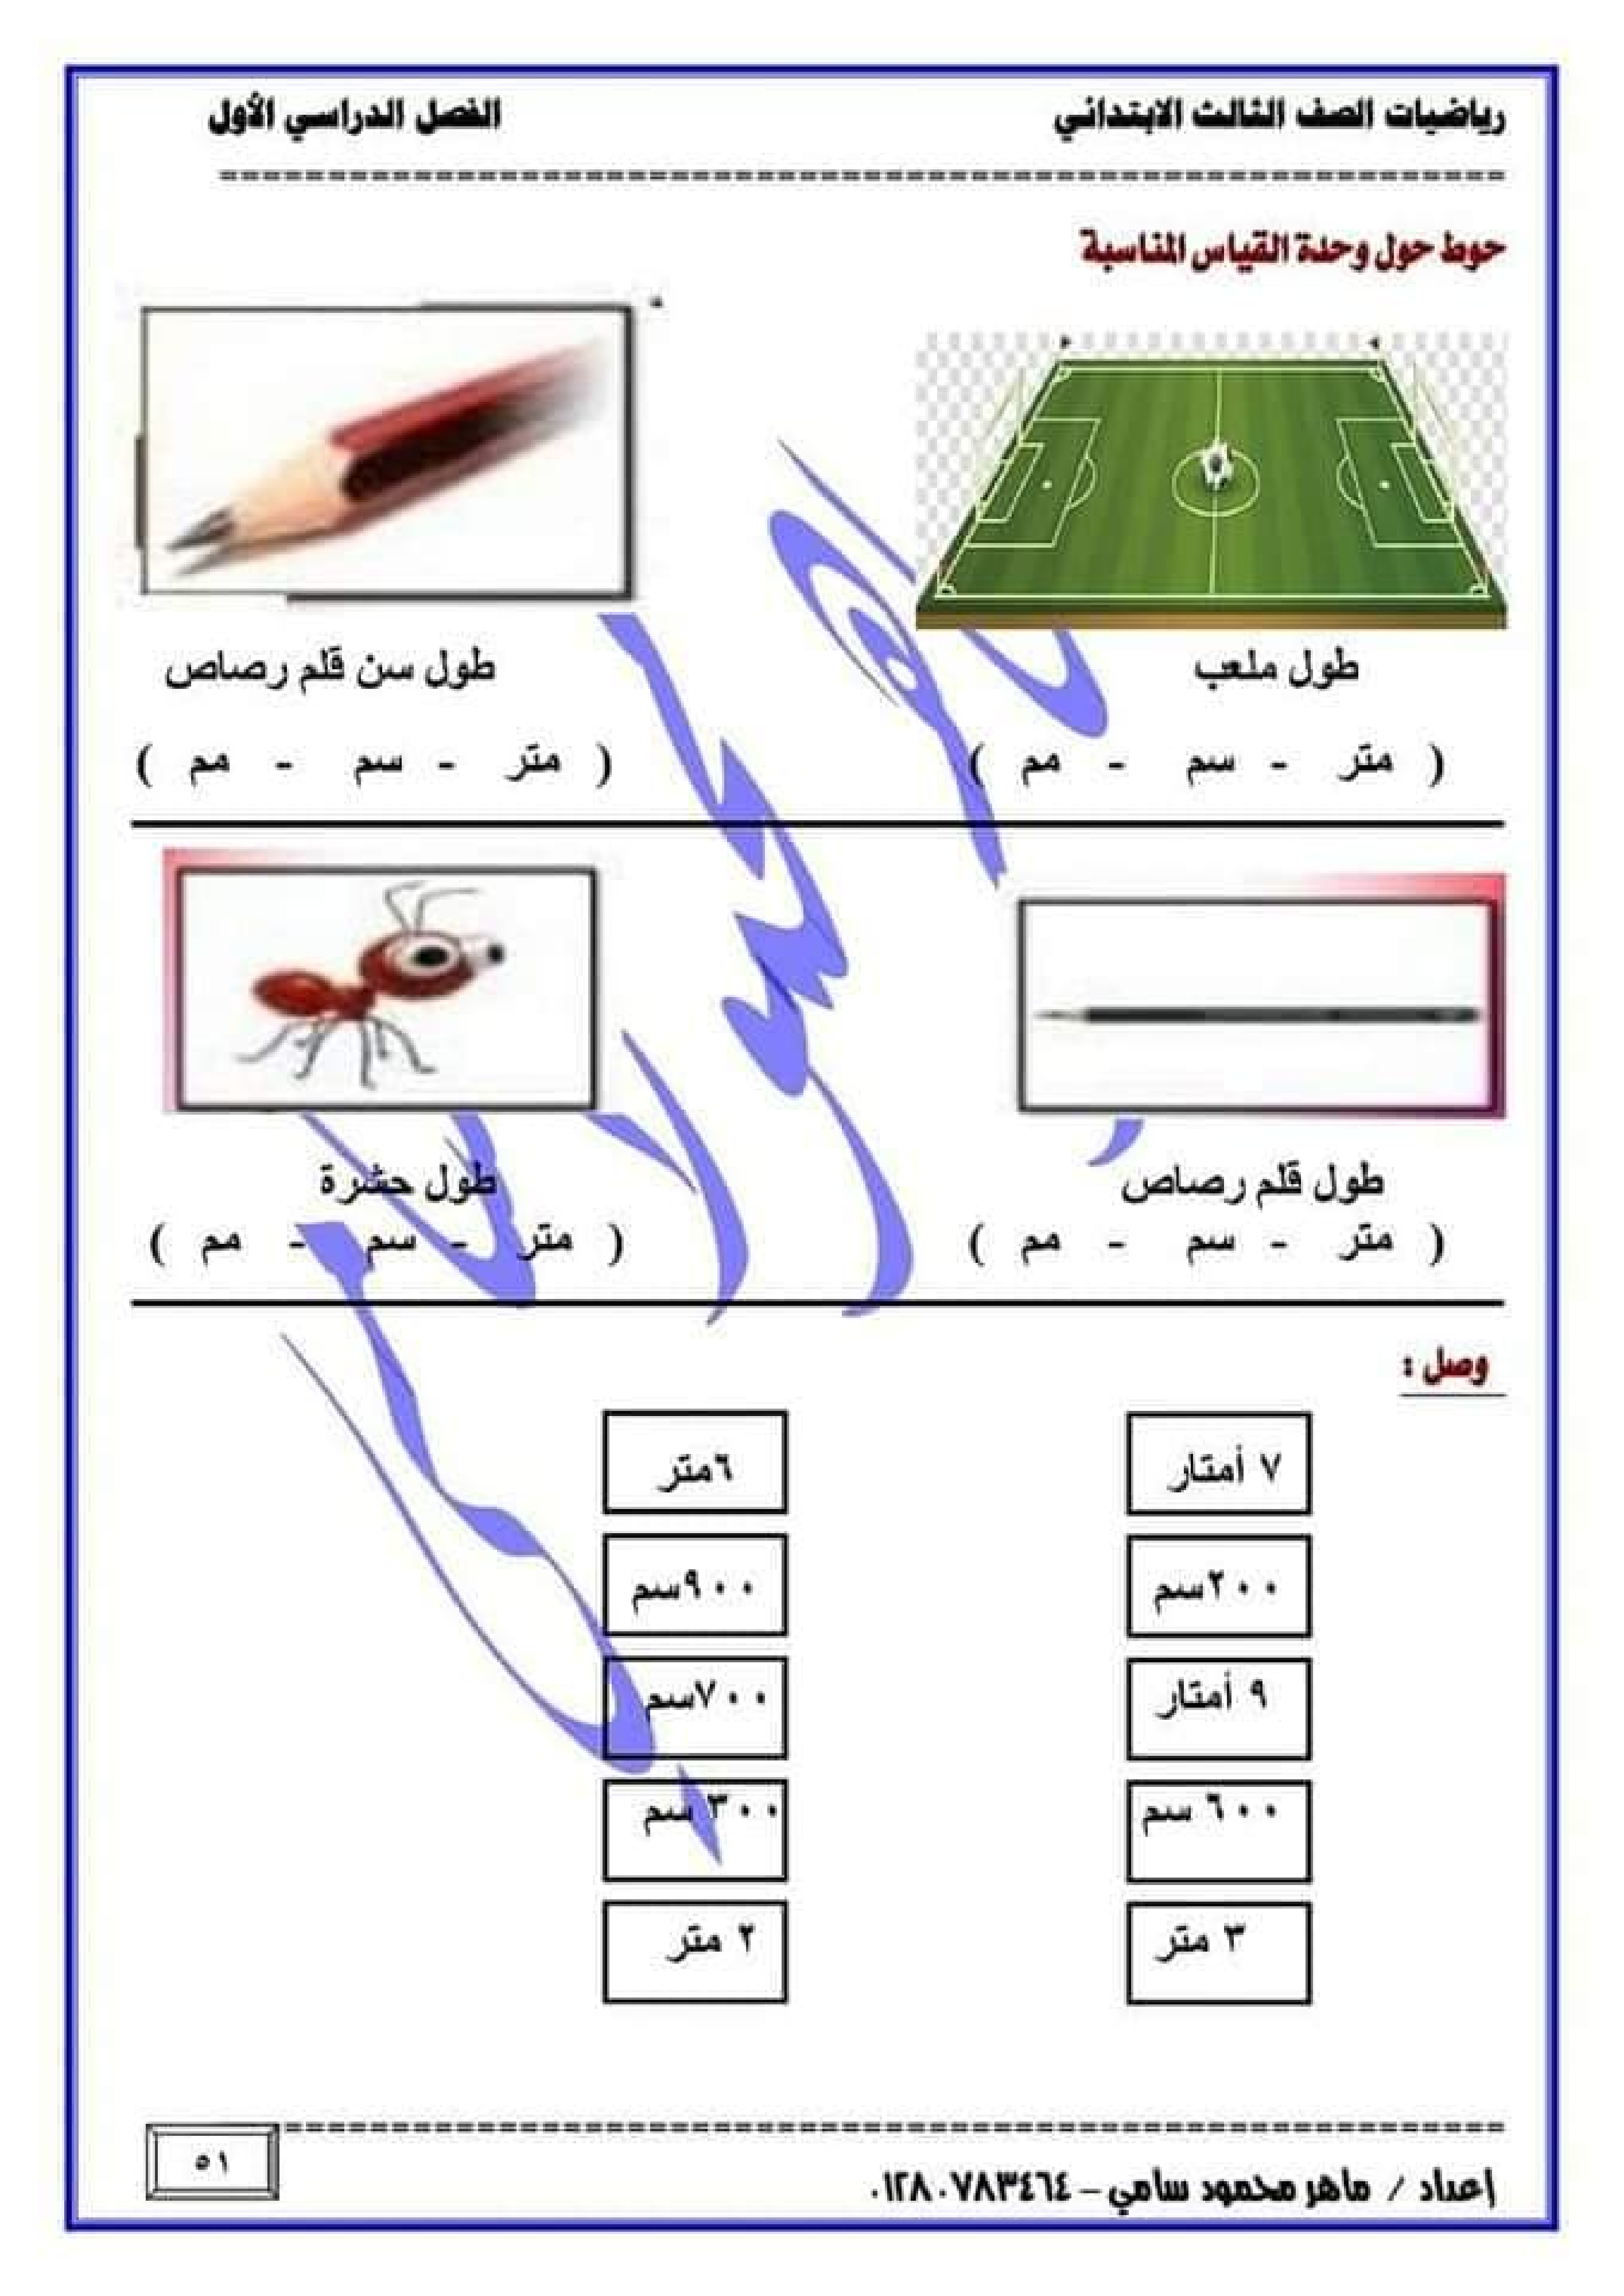 رياضيات الصف الثالث الابتدائي الفصل الدراسي الأول
حوط حول وحدة القياس المناسبة
طول ملعب طول سن قلم رصاص
( متر - سم - مم ) ( متر - سم - مم )
طول قلم رصاص طول حشرة
( متر - سم - مم ) ( متر - سم - مم )
وصل :
٧ أمتار ٦متر
٢٠٠سم ٩٠٠سم
٩ أمتار ٧٠٠سم
٦٠٠ سم ٣٠٠ سم
٣ متر ٢ متر
٥١
إعداد / ماهر محمود سامي – ٠١٢٨٠٧٨٣٤٦٤